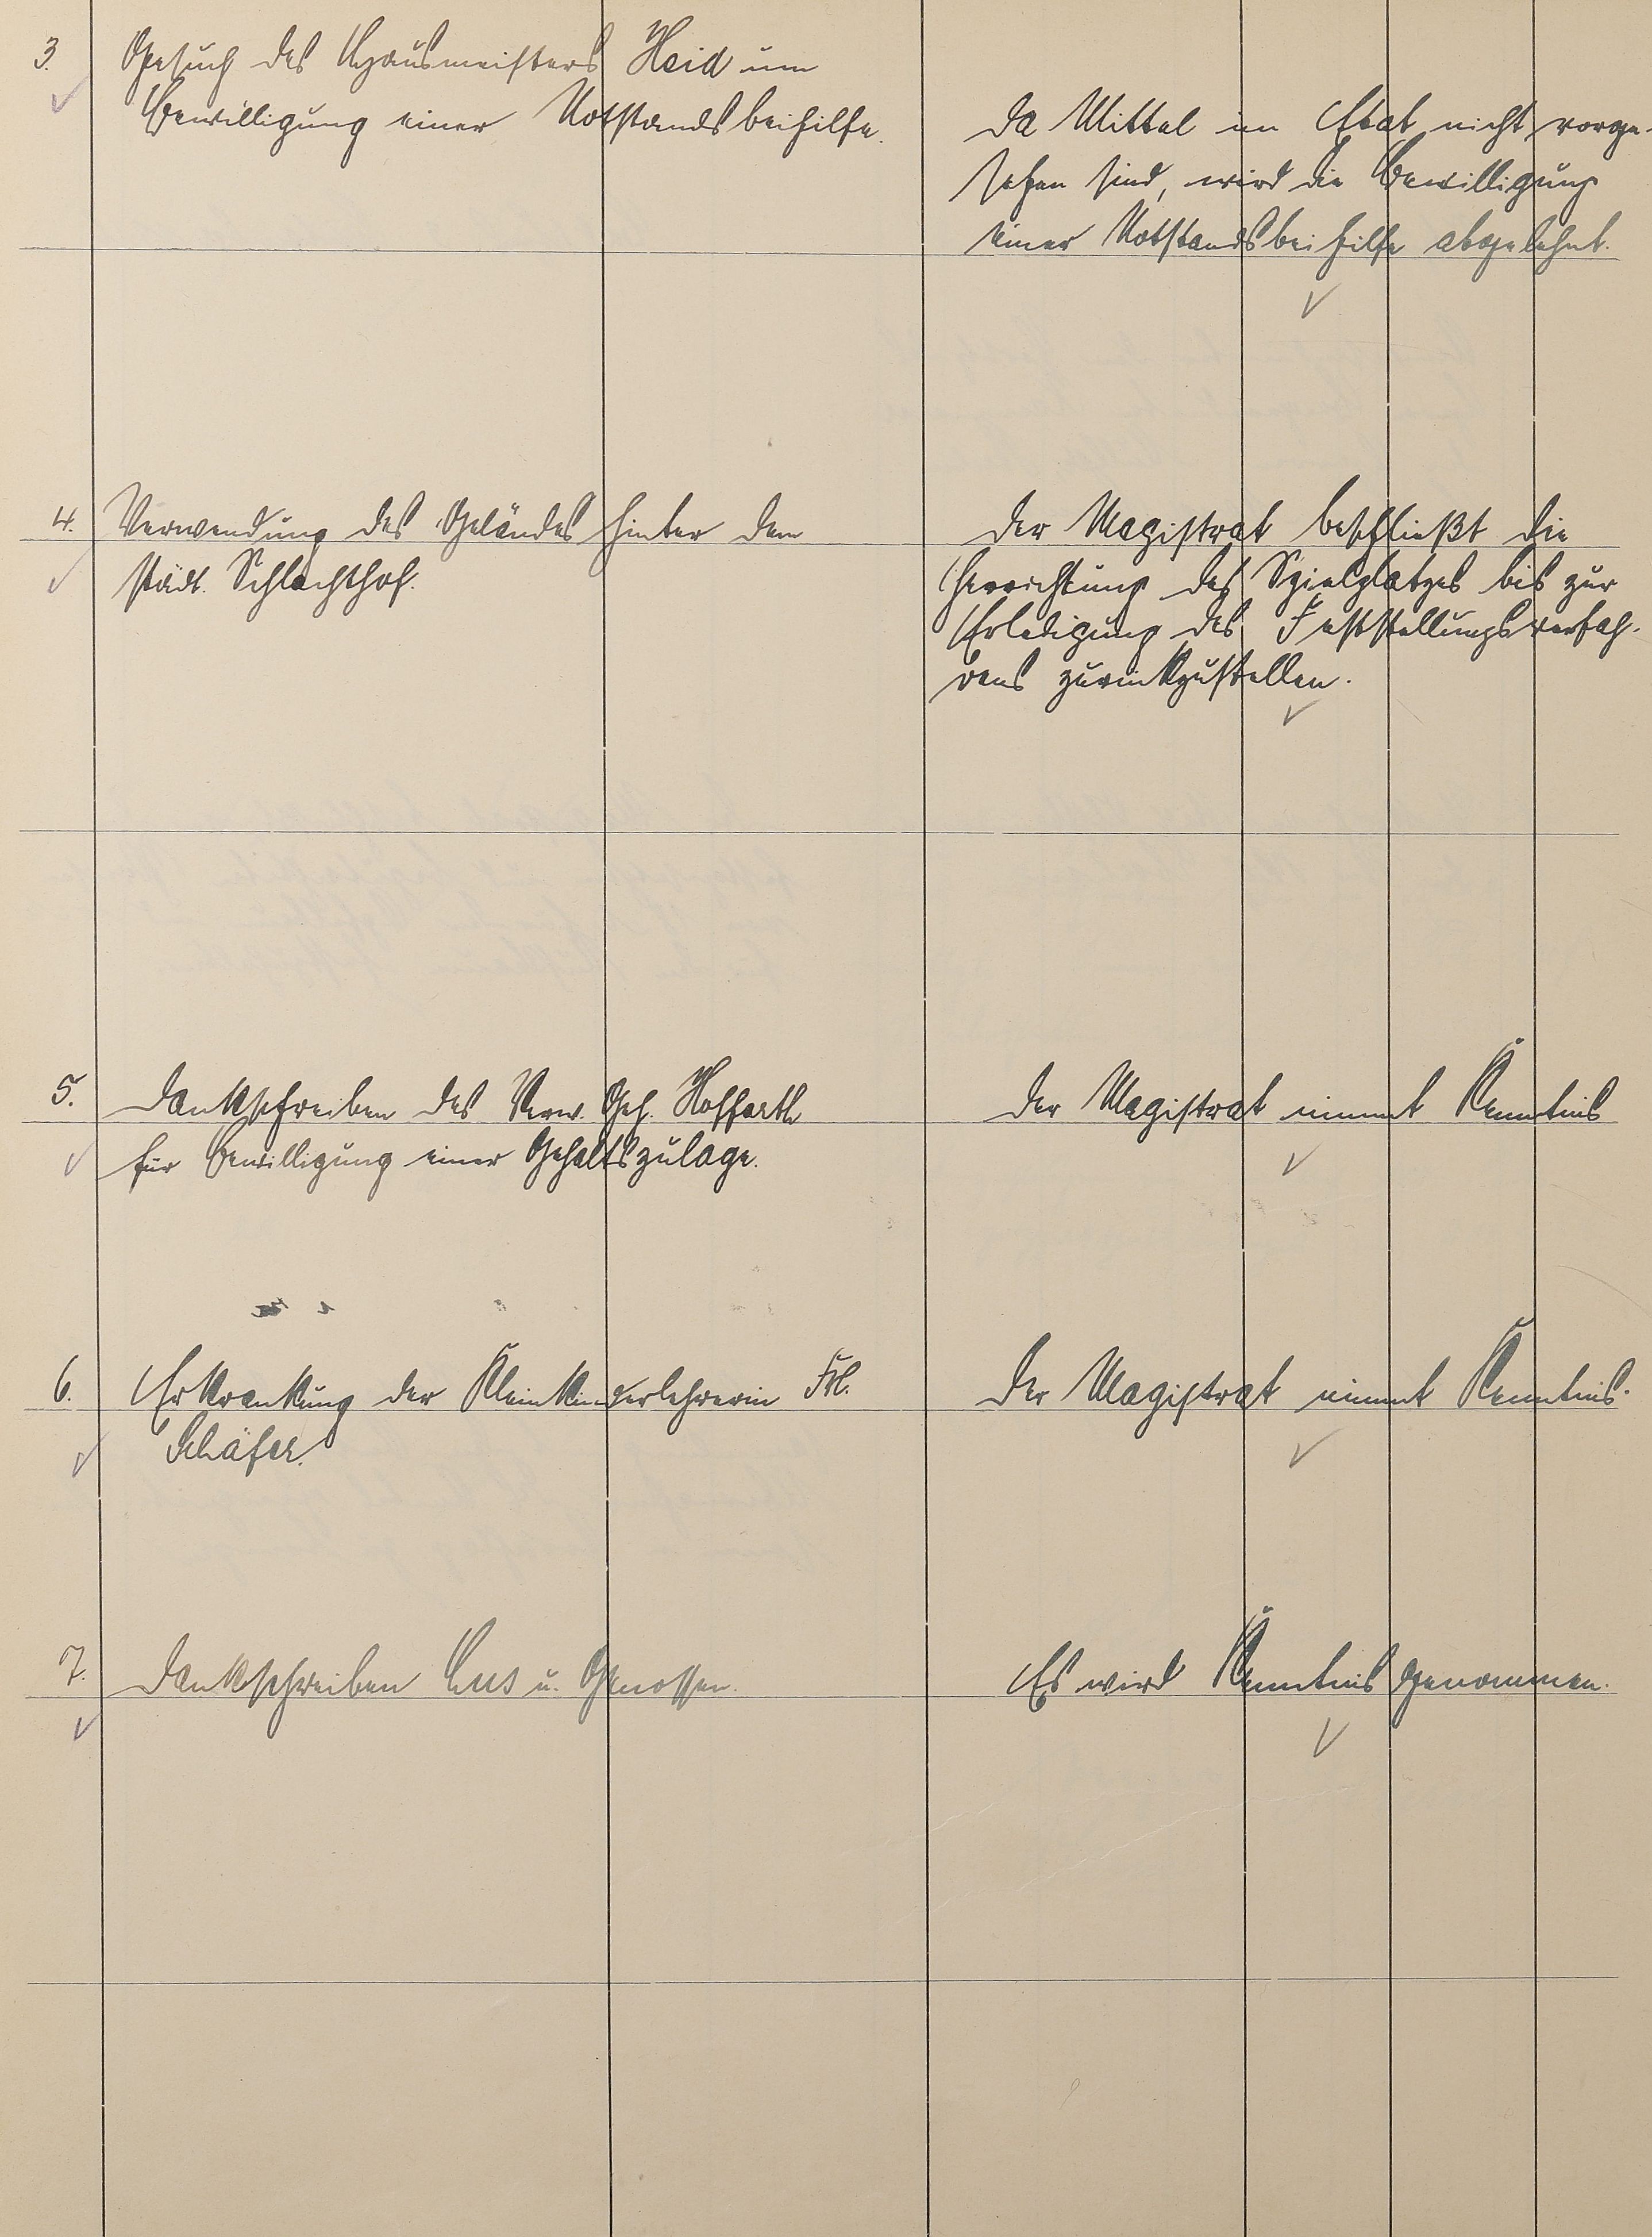 3. Gesuch des Hausmeisters Heid um
Bewilligung einer Notstandsbeihilfe.
Da Mittel im Etat nicht vorge-
sehen sind, wird die Bewilligung
einer Notstandsbeihilfe abgelehnt.
4. Verwendung des Geländes hinter dem
städt. Schlachthof.
Der Magistrat beschließt die
Herrichtung des Spielplatzes bis zur
Erledigung des Feststellungsverfah-
rens zurückzustellen.
5. Dankschreiben des Verw. Geh. Hoffarth
für Bewilligung einer Gehaltszulage.
Der Magistrat nimmt Kenntnis
6. Erkrankung der Kleinkinderlehrerin Frl.
Schäfer.
Der Magistrat nimmt Kenntnis.
7. Dankschreiben u. Genossen.
Es wird Kenntnis genommen.